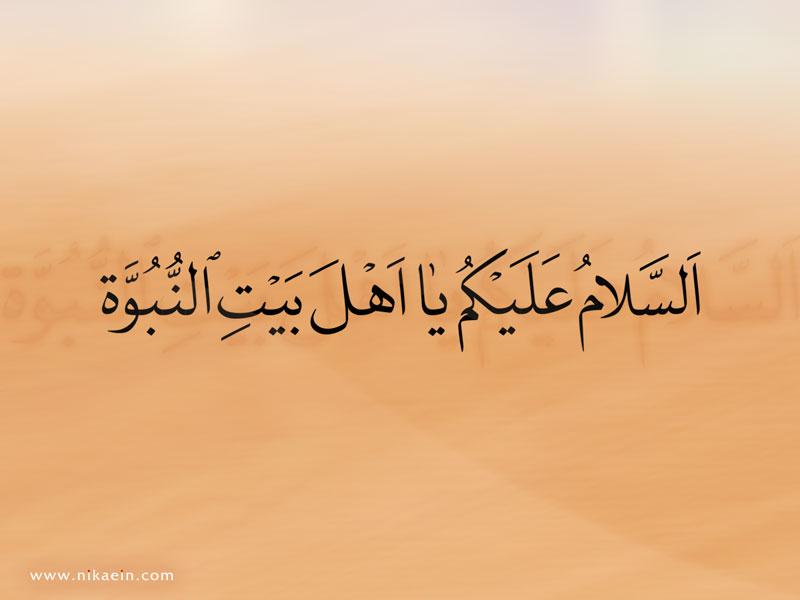 اَلسَّلامُ عَلَيْكُمْ يٰا اَهْلَ بَيْتِ ٱلنُّبُوَّة
www.nikaein.com